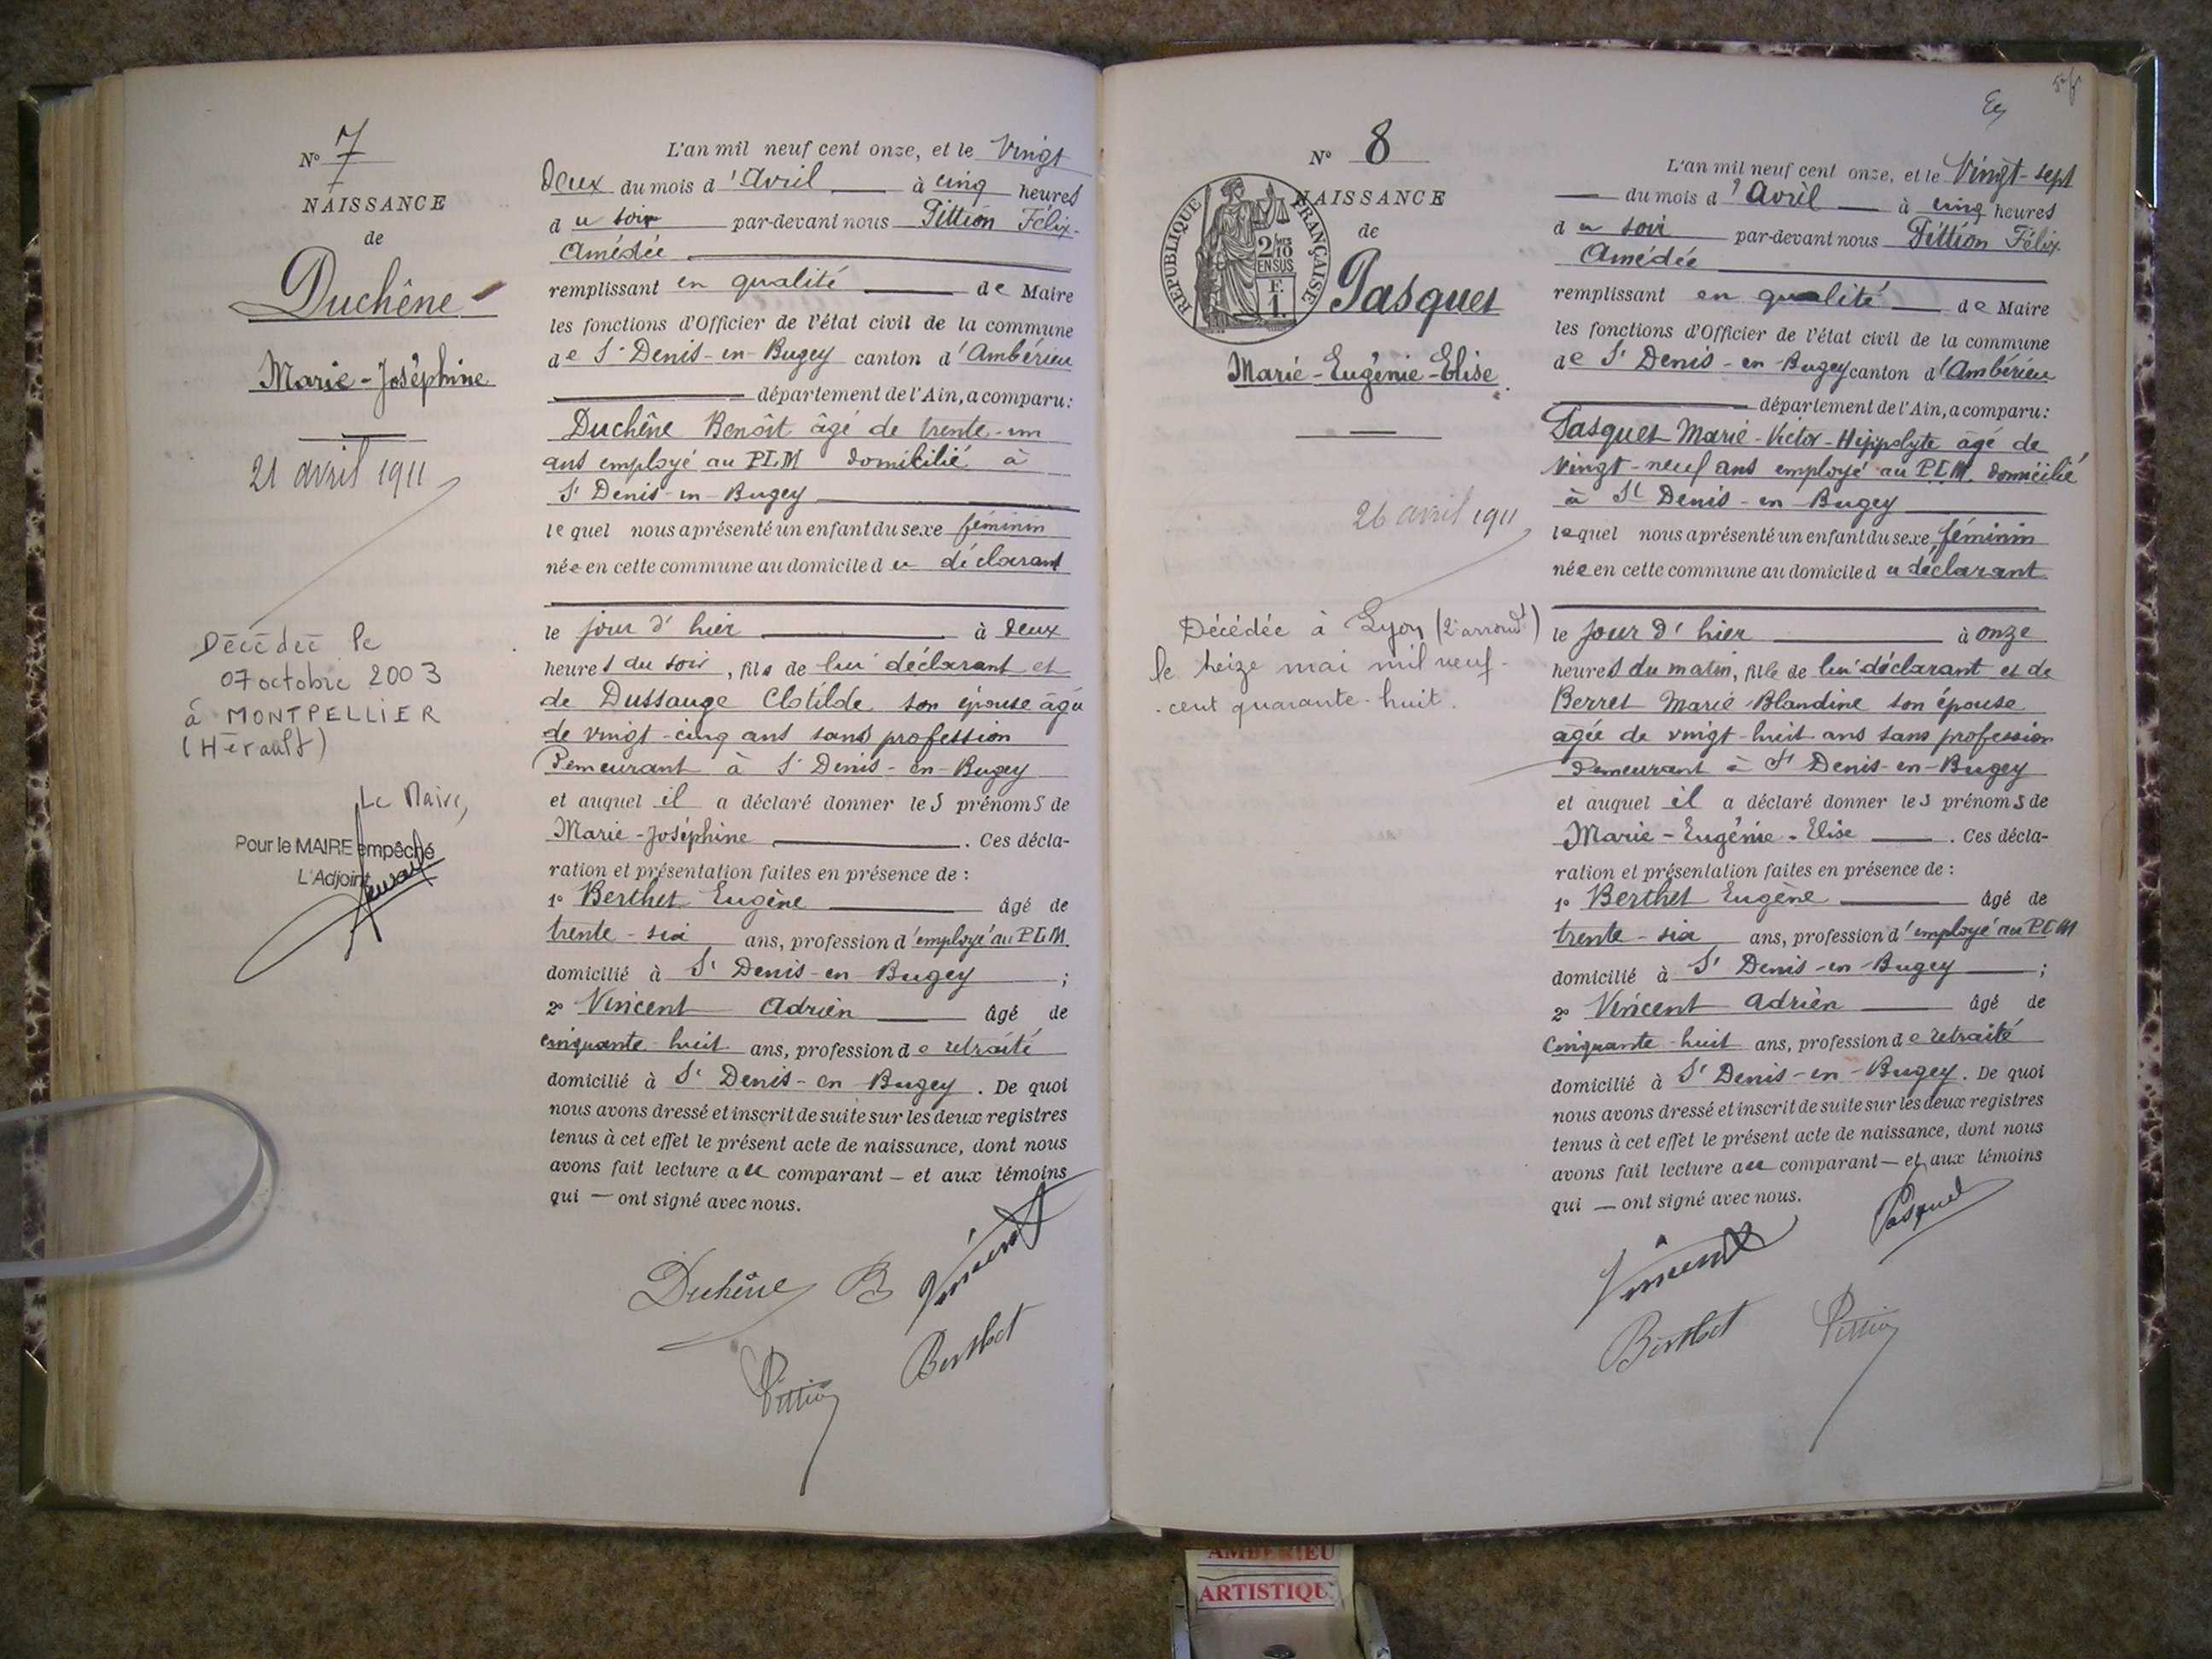 N° 7
NAISSANCE
de
Duchêne
Marie-Joséphine
21 avril 1911
Décédée le
07 octobre 2003
à MONTPELLIER
(Hérault)
Le Maire,
Pour le MAIRE empêché
L'Adjoint
L'an mil neuf cent onze, et le Vingt
Deux du mois d'Avril à cinq heures
du soir par-devant nous Pittion Félix-
Amédée
remplissant en qualité de Maire
les fonctions d'Officier de l'état civil de la commune
de St Denis-en-Bugey canton d'Ambérieu
département de l'Ain, a comparu:
Duchêne Benoît âgé de trente-un
ans employé au PLM domicilié à
St Denis-en-Bugey
lequel nous a présenté un enfant du sexe féminin
née en cette commune au domicile du déclarant
le jour d'hier à deux
heures du soir, fils de lui déclarant et
de Dussauge Clotilde son épouse âgée
de vingt-cinq ans sans profession
Demeurant à St Denis-en-Bugey
et auquel il a déclaré donner les prénoms de
Marie-Joséphine. Ces décla-
ration et présentation faites en présence de :
1° Berthet Eugène âgé de
trente-six ans, profession d'employé au PLM
domicilié à St Denis-en-Bugey ;
2° Vincent Adrien âgé de
cinquante-huit ans, profession de retraité
domicilié à St Denis-en-Bugey. De quoi
nous avons dressé et inscrit de suite sur les deux registres
tenus à cet effet le présent acte de naissance, dont nous
avons fait lecture au comparant — et aux témoins
qui — ont signé avec nous.
Duchêne B Vincent
Berthet
Pittion
N° 8
NAISSANCE
de
RÉPUBLIQUE FRANÇAISE
2/10
EN SUS
F.
1.
Pasquet
Marie-Eugénie-Elise
26 avril 1911
Décédée à Lyon (2e arrondt)
le treize mai mil neuf-
cent quarante-huit.
L'an mil neuf cent onze, et le Vingt-sept
du mois d'Avril à cinq heures
du soir par-devant nous Pittion Félix
Amédée
remplissant en qualité de Maire
les fonctions d'Officier de l'état civil de la commune
de St Denis-en-Bugey canton d'Ambérieu
département de l'Ain, a comparu:
Pasquet Marie-Victor-Hippolyte âgé de
vingt-neuf ans employé au P.L.M. domicilié
à St Denis-en-Bugey
lequel nous a présenté un enfant du sexe féminin
née en cette commune au domicile du déclarant
le jour d'hier à onze
heures du matin, fille de lui déclarant et de
Berret Marie Blandine son épouse
âgée de vingt-huit ans sans profession
demeurant à St Denis-en-Bugey
et auquel il a déclaré donner les prénoms de
Marie-Eugénie-Elise. Ces décla-
ration et présentation faites en présence de :
1° Berthet Eugène âgé de
trente-six ans, profession d'employé au PLM
domicilié à St Denis-en-Bugey ;
2° Vincent Adrien âgé de
cinquante-huit ans, profession de retraité
domicilié à St Denis-en-Bugey. De quoi
nous avons dressé et inscrit de suite sur les deux registres
tenus à cet effet le présent acte de naissance, dont nous
avons fait lecture au comparant — et aux témoins
qui — ont signé avec nous.
Vincent Pasquet
Berthet Pittion
AMBERIEU
ARTISTIQU